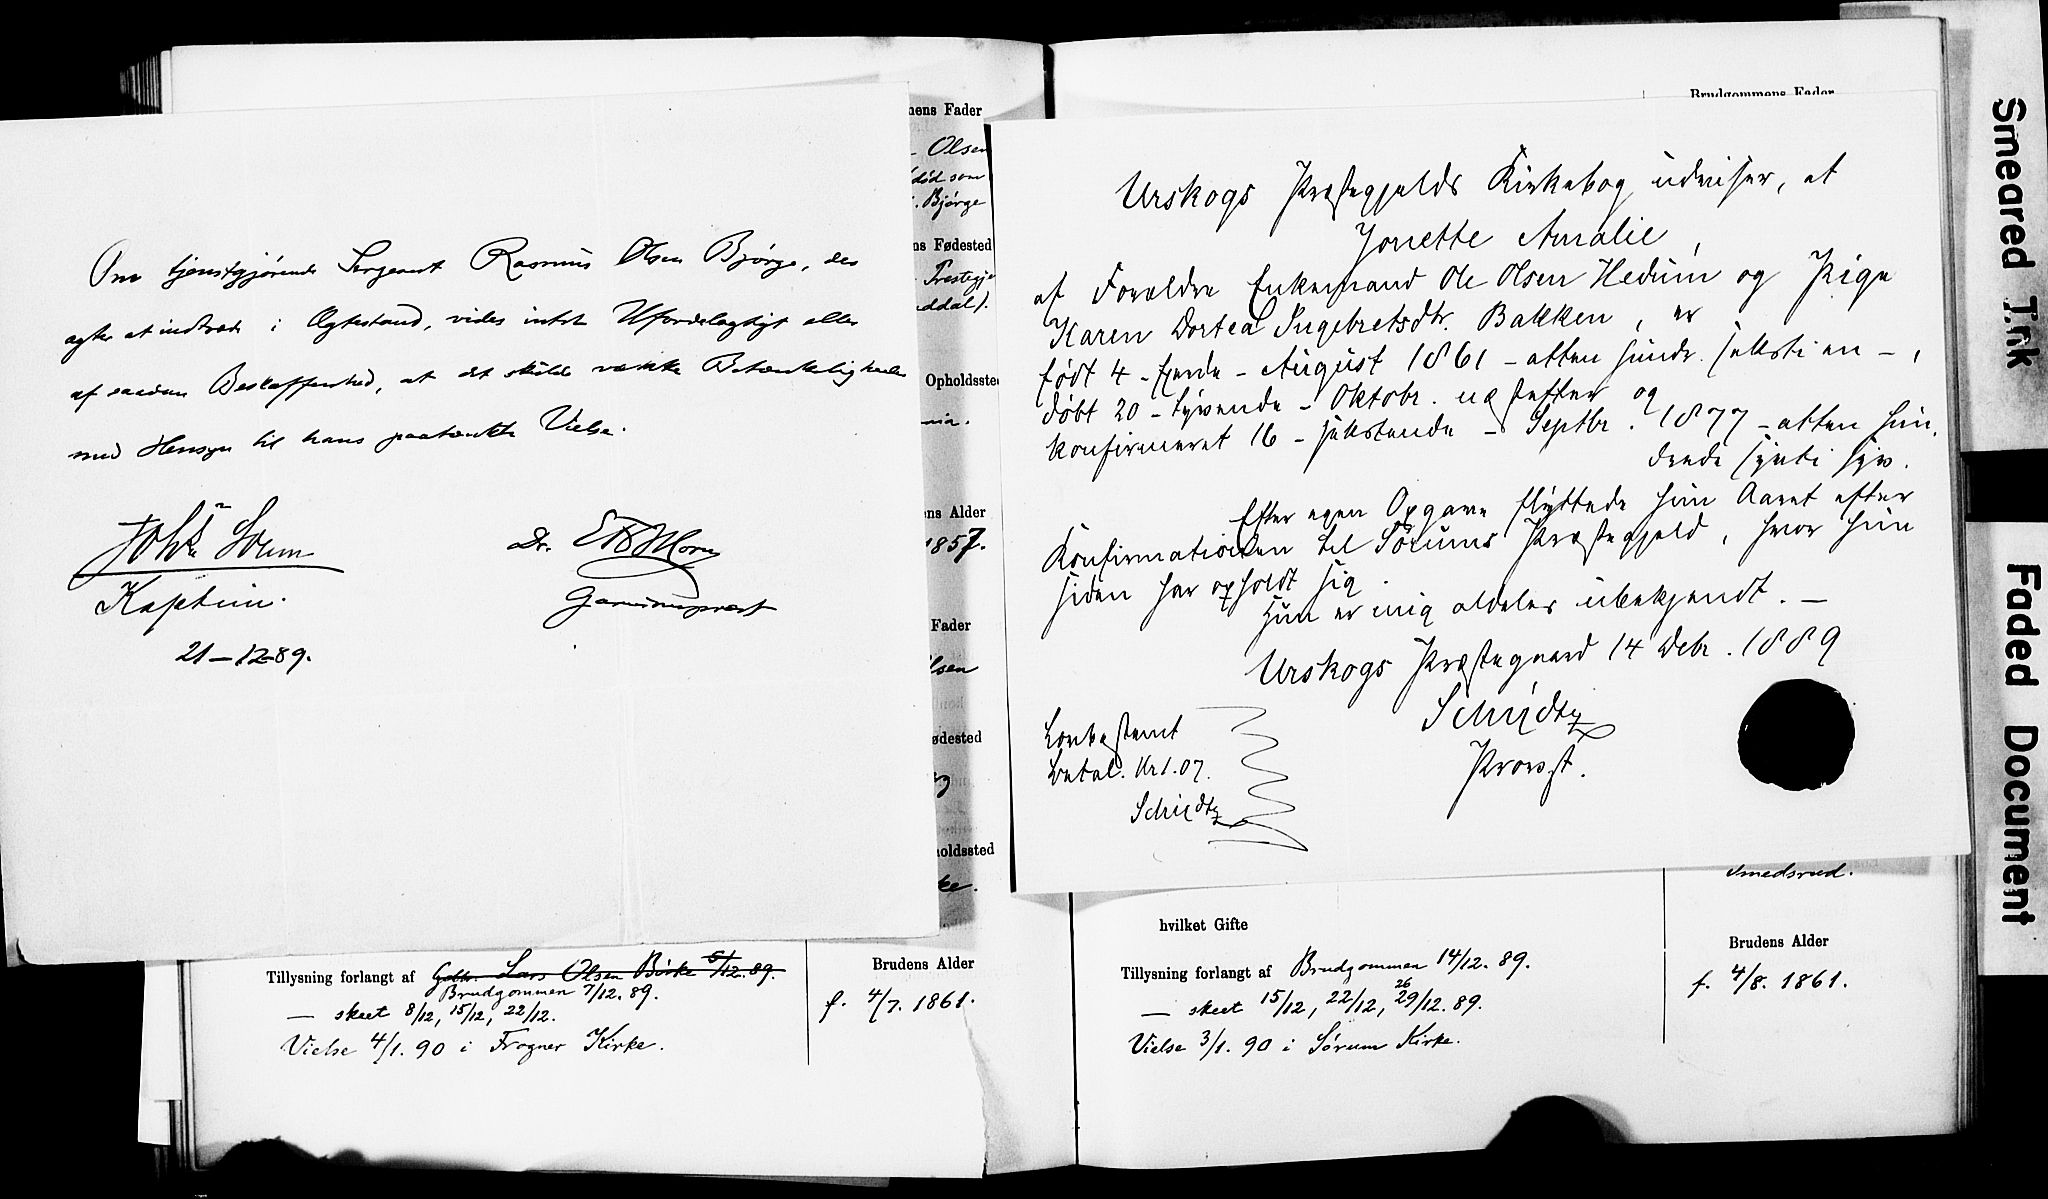 Om tjenstgjørende Sergeant Rasmus Olsen Bjørge, der
agter at indtræde i Ægtestand, vides intet Ufordelagtigt eller
af saadan Beskaffenhed, at det skulde vække Betænkeligheder
med Hensyn til hans paatænkte Vielse.
Kaptein.
21-12-89.
Dr.
Garnisonsprest
mens Fader
- Olsen
død som
. Bjørge
ns Fødested
Prestegje
ddal).
Opholdssted
nia.
ns Alder
1857.
Fader
lsen
ødested
holdssted
ke.
Tillysning forlangt af Gdbr. Lars Olsen Børke 6/12.89.
Brudgommen 7/12.89.
— skeet 8/12, 15/12, 22/12.
Vielse 4/1.90 i Frogner Kirke.
Brudens Alder
f. 4/7. 1861.
Brudgommens Fader
Urskogs Præstegjelds Kirkebog udviser, at
Jonette Amalie,
af Forældre Enkemand Ole Olsen Hedum og Pige
Karen Dortea Ingebretsdtr. Bakken, er
født 4 - fjerde - August 1861 - atten hundr. sekstien -,
døbt 20 - tyvende - Oktobr. næstefter og
konfirmeret 16 - sekstende - Septbr. 1877 - atten hun-
drede sytti syv.
Efter egen Opgave flyttede hun Aaret efter
Konfirmationen til Sørums Præstegjeld, hvor hun
siden har opholdt sig.
Hun er mig aldeles ubekjendt. —
Urskogs Præstegaard 14 Debr. 1889
Schiydtz
Provst.
Lovbestemt
betal. Kr 1.07.
Schiydtz
Smedsrud.
hvilket Gifte
Tillysning forlangt af Brudgommen 14/12.89.
— skeet 15/12, 22/12, 26 29/12.89.
Vielse 3/1.90 i Sørum Kirke.
Brudens Alder
f. 4/8. 1861.
Smeared Trk
Faded Document